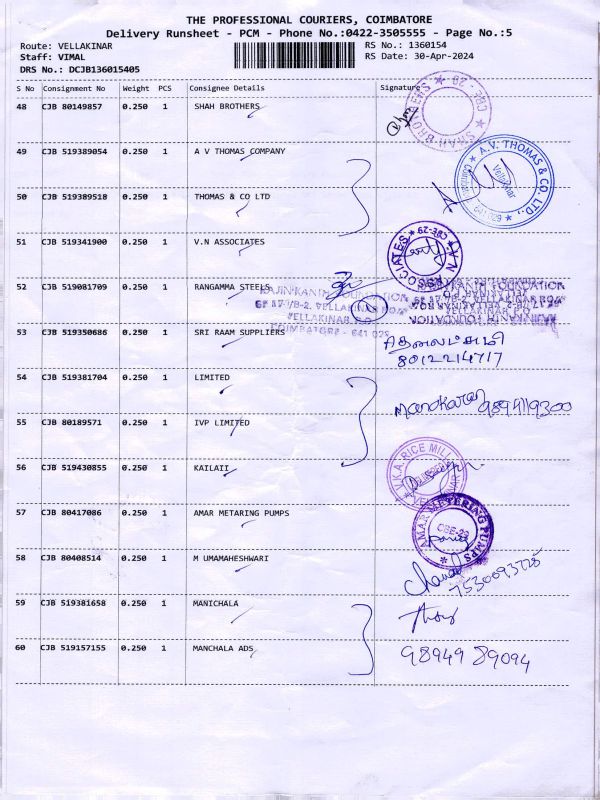 THE PROFESSIONAL COURIERS, COIMBATORE
Delivery Runsheet - PCM - Phone No.:0422-3505555 - Page No.:5
Route: VELLAKINAR
RS No.: 1360154
Staff: VIMAL
RS Date: 30-Apr-2024
DRS No.: DCJB136015405
S No Consignment No Weight PCS Consignee Details Signature
48 CJB 80149857 0.250 1 SHAH BROTHERS
SHAH BROTHERS CBE - 29
49 CJB 519389054 0.250 1 A V THOMAS COMPANY
A.V. THOMAS & CO. LTD.,
Vellakinar
Coimbatore 641 029
50 CJB 519389518 0.250 1 THOMAS & CO LTD
51 CJB 519341900 0.250 1 V.N ASSOCIATES
V.N ASSOCIATES CBE-29
52 CJB 519081709 0.250 1 RANGAMMA STEELS
RAJINIKANTH FOUNDATION
VELLAKINAR P.O
COIMBATORE - 641 029
53 CJB 519350686 0.250 1 SRI RAAM SUPPLIERS
8012214717
54 CJB 519381704 0.250 1 LIMITED
Manokaran 9894119300
55 CJB 80189571 0.250 1 IVP LIMITED
56 CJB 519430855 0.250 1 KAILAII
RICE MILL
57 CJB 80417086 0.250 1 AMAR METARING PUMPS
AMAR METERING PUMPS
58 CJB 80408514 0.250 1 M UMAMAHESHWARI
7530093728
59 CJB 519381658 0.250 1 MANICHALA
60 CJB 519157155 0.250 1 MANCHALA ADS
98949 89094